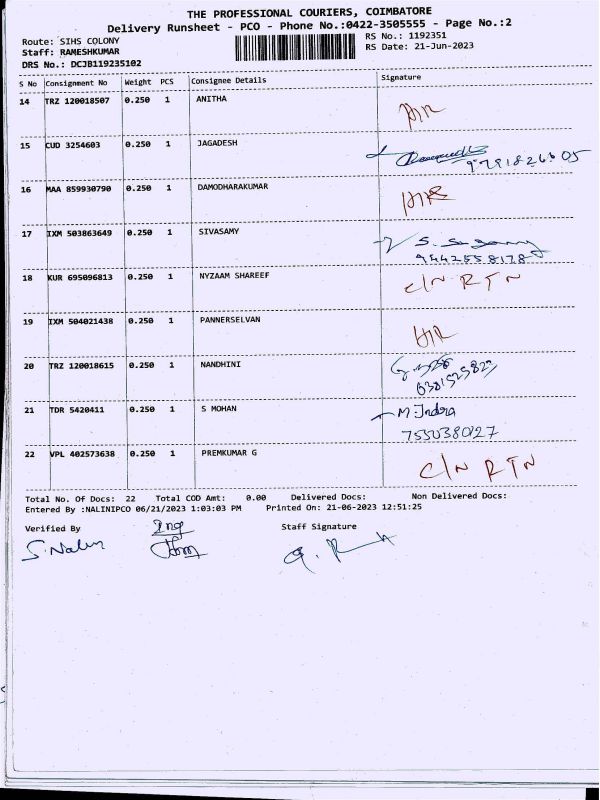 THE PROFESSIONAL COURIERS, COIMBATORE
Delivery Runsheet - PCO - Phone No.:0422-3505555 - Page No.:2
Route: SIHS COLONY
RS No.: 1192351
Staff: RAMESHKUMAR
RS Date: 21-Jun-2023
DRS No.: DCJB119235102
S No Consignment No Weight PCS Consignee Details Signature
14 TRZ 120018507 0.250 1 ANITHA
15 CUD 3254603 0.250 1 JAGADESH
9791826605
16 MAA 859930790 0.250 1 DAMODHARAKUMAR
17 IXM 503863649 0.250 1 SIVASAMY
9442558178
18 KUR 695096813 0.250 1 NYZAAM SHAREEF C/N RTN
19 IXM 504021438 0.250 1 PANNERSELVAN
20 TRZ 120018615 0.250 1 NANDHINI
6381525823
21 TDR 5420411 0.250 1 S MOHAN M. Indra
7550380127
22 VPL 402573638 0.250 1 PREMKUMAR G C/N RTN
Total No. Of Docs: 22 Total COD Amt: 0.00 Delivered Docs: Non Delivered Docs:
Entered By :NALINIPCO 06/21/2023 1:03:03 PM Printed On: 21-06-2023 12:51:25
Verified By Staff Signature
S. Nalin